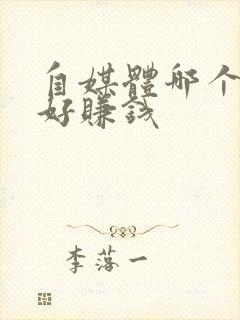 自媒體哪个
好賺钱
李落一